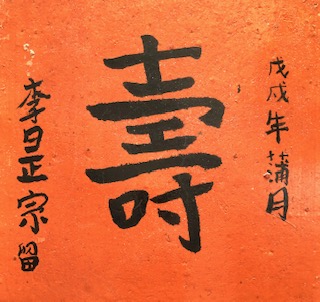 戊戌年蒲月
壽
李日正宗留